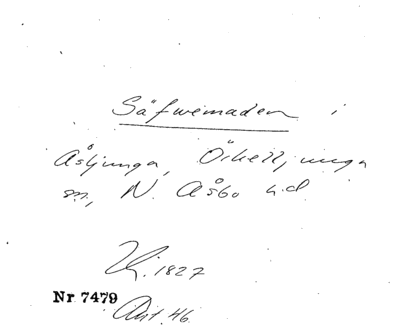 Säfwemaden i
Åsljunga, Örkelljunga
sn, N. Åsbo hd
1827
Nr 7479
Ant. 46